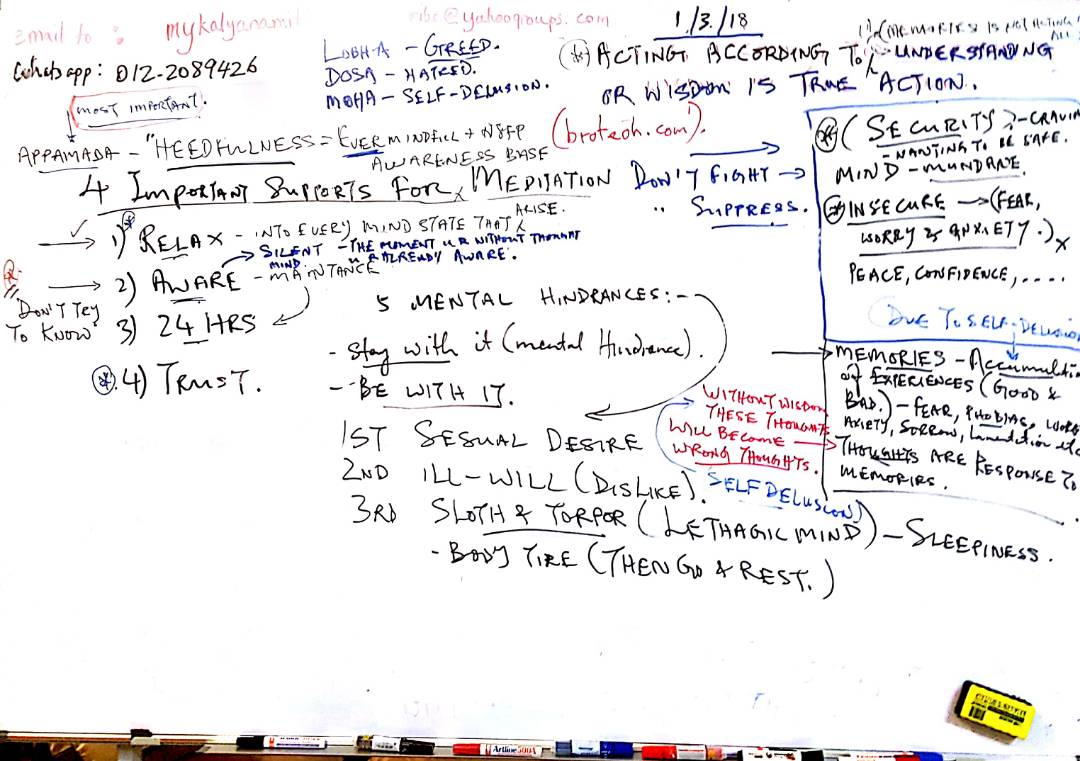 Email to : mykalyanamit ribc@yahoogroups.com
1/3/18
Whatsapp: 012-2089426
MOST IMPORTANT.
LOBHA - GREED.
DOSA - HATRED.
MOHA - SELF-DELUSION.
(MEMORIES IS NOT ACTING
ACTING ACCORDING TO UNDERSTANDING
OR WISDOM IS TRUE ACTION.
APPAMADA - "HEEDFULNESS = EVER MINDFUL +
AWARENESS BASE
(brotech.com).
4 IMPORTANT SUPPORTS FOR MEDITATION
DON'T FIGHT
" SUPPRESS.
1) RELAX - INTO EVERY MIND STATE THAT ARISE.
2) AWARE - MAINTANCE
SILENT MIND. - THE MOMENT U R WITHOUT THOUGHT
U R ALREADY AWARE.
"DON'T TRY
TO KNOW"
3) 24 HRS
4) TRUST.
5 MENTAL HINDRANCES:-
- Stay with it (mental Hindrance).
- BE WITH IT.
1ST SESUAL DESIRE
2ND ILL-WILL (DISLIKE).
3RD SLOTH & TORPOR (LETHAGIC MIND) - SLEEPINESS.
- BODY TIRE (THEN GO & REST.)
WITHOUT WISDOM
THESE THOUGHTS
WILL BECOME
WRONG THOUGHTS.
(SELF DELUSION)
(SECURITY) - CRAVIN
- WANTING TO BE SAFE.
MIND - MUNDANE.
INSECURE → (FEAR,
WORRY & ANXIETY.)
PEACE, CONFIDENCE, ....
DUE TO SELF-DELUSION
MEMORIES - Accumulatio
of EXPERIENCES (GOOD &
BAD.) - FEAR, PHOBIAS, WORRY
AXIETY, SORROW, Lamentation etc
THOUGHTS ARE RESPONSE TO
MEMORIES.
Artline 500A